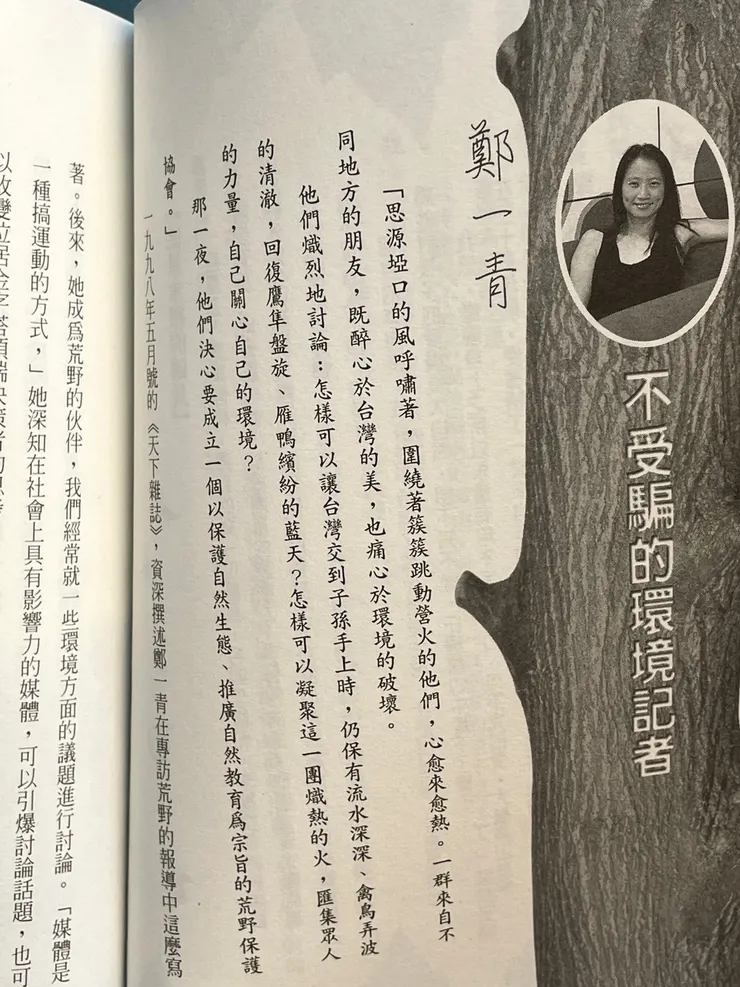 不受騙的環境記者
鄭一青
「思源埡口的風呼嘯著，圍繞著簇簇跳動營火的他們，心愈來愈熱。一群來自不
同地方的朋友，既醉心於台灣的美，也痛心於環境的破壞。
他們熾烈地討論：怎樣可以讓台灣交到子孫手上時，仍保有流水深深、禽鳥弄波
的清澈，回復鷹隼盤旋、雁鴨繽紛的藍天？怎樣可以凝聚這一團熾熱的火，匯集眾人
的力量，自己關心自己的環境？
那一夜，他們決心要成立一個以保護自然生態、推廣自然教育爲宗旨的荒野保護
協會。」
一九九八年五月號的《天下雜誌》，資深撰述鄭一青在專訪荒野的報導中這麼寫
著。後來，她成爲荒野的伙伴，我們經常就一些環境方面的議題進行討論。「媒體是
一種搞運動的方式，」她深知在社會上具有影響力的媒體，可以引爆討論話題，也可
以改變位居金字塔頂端決策者的